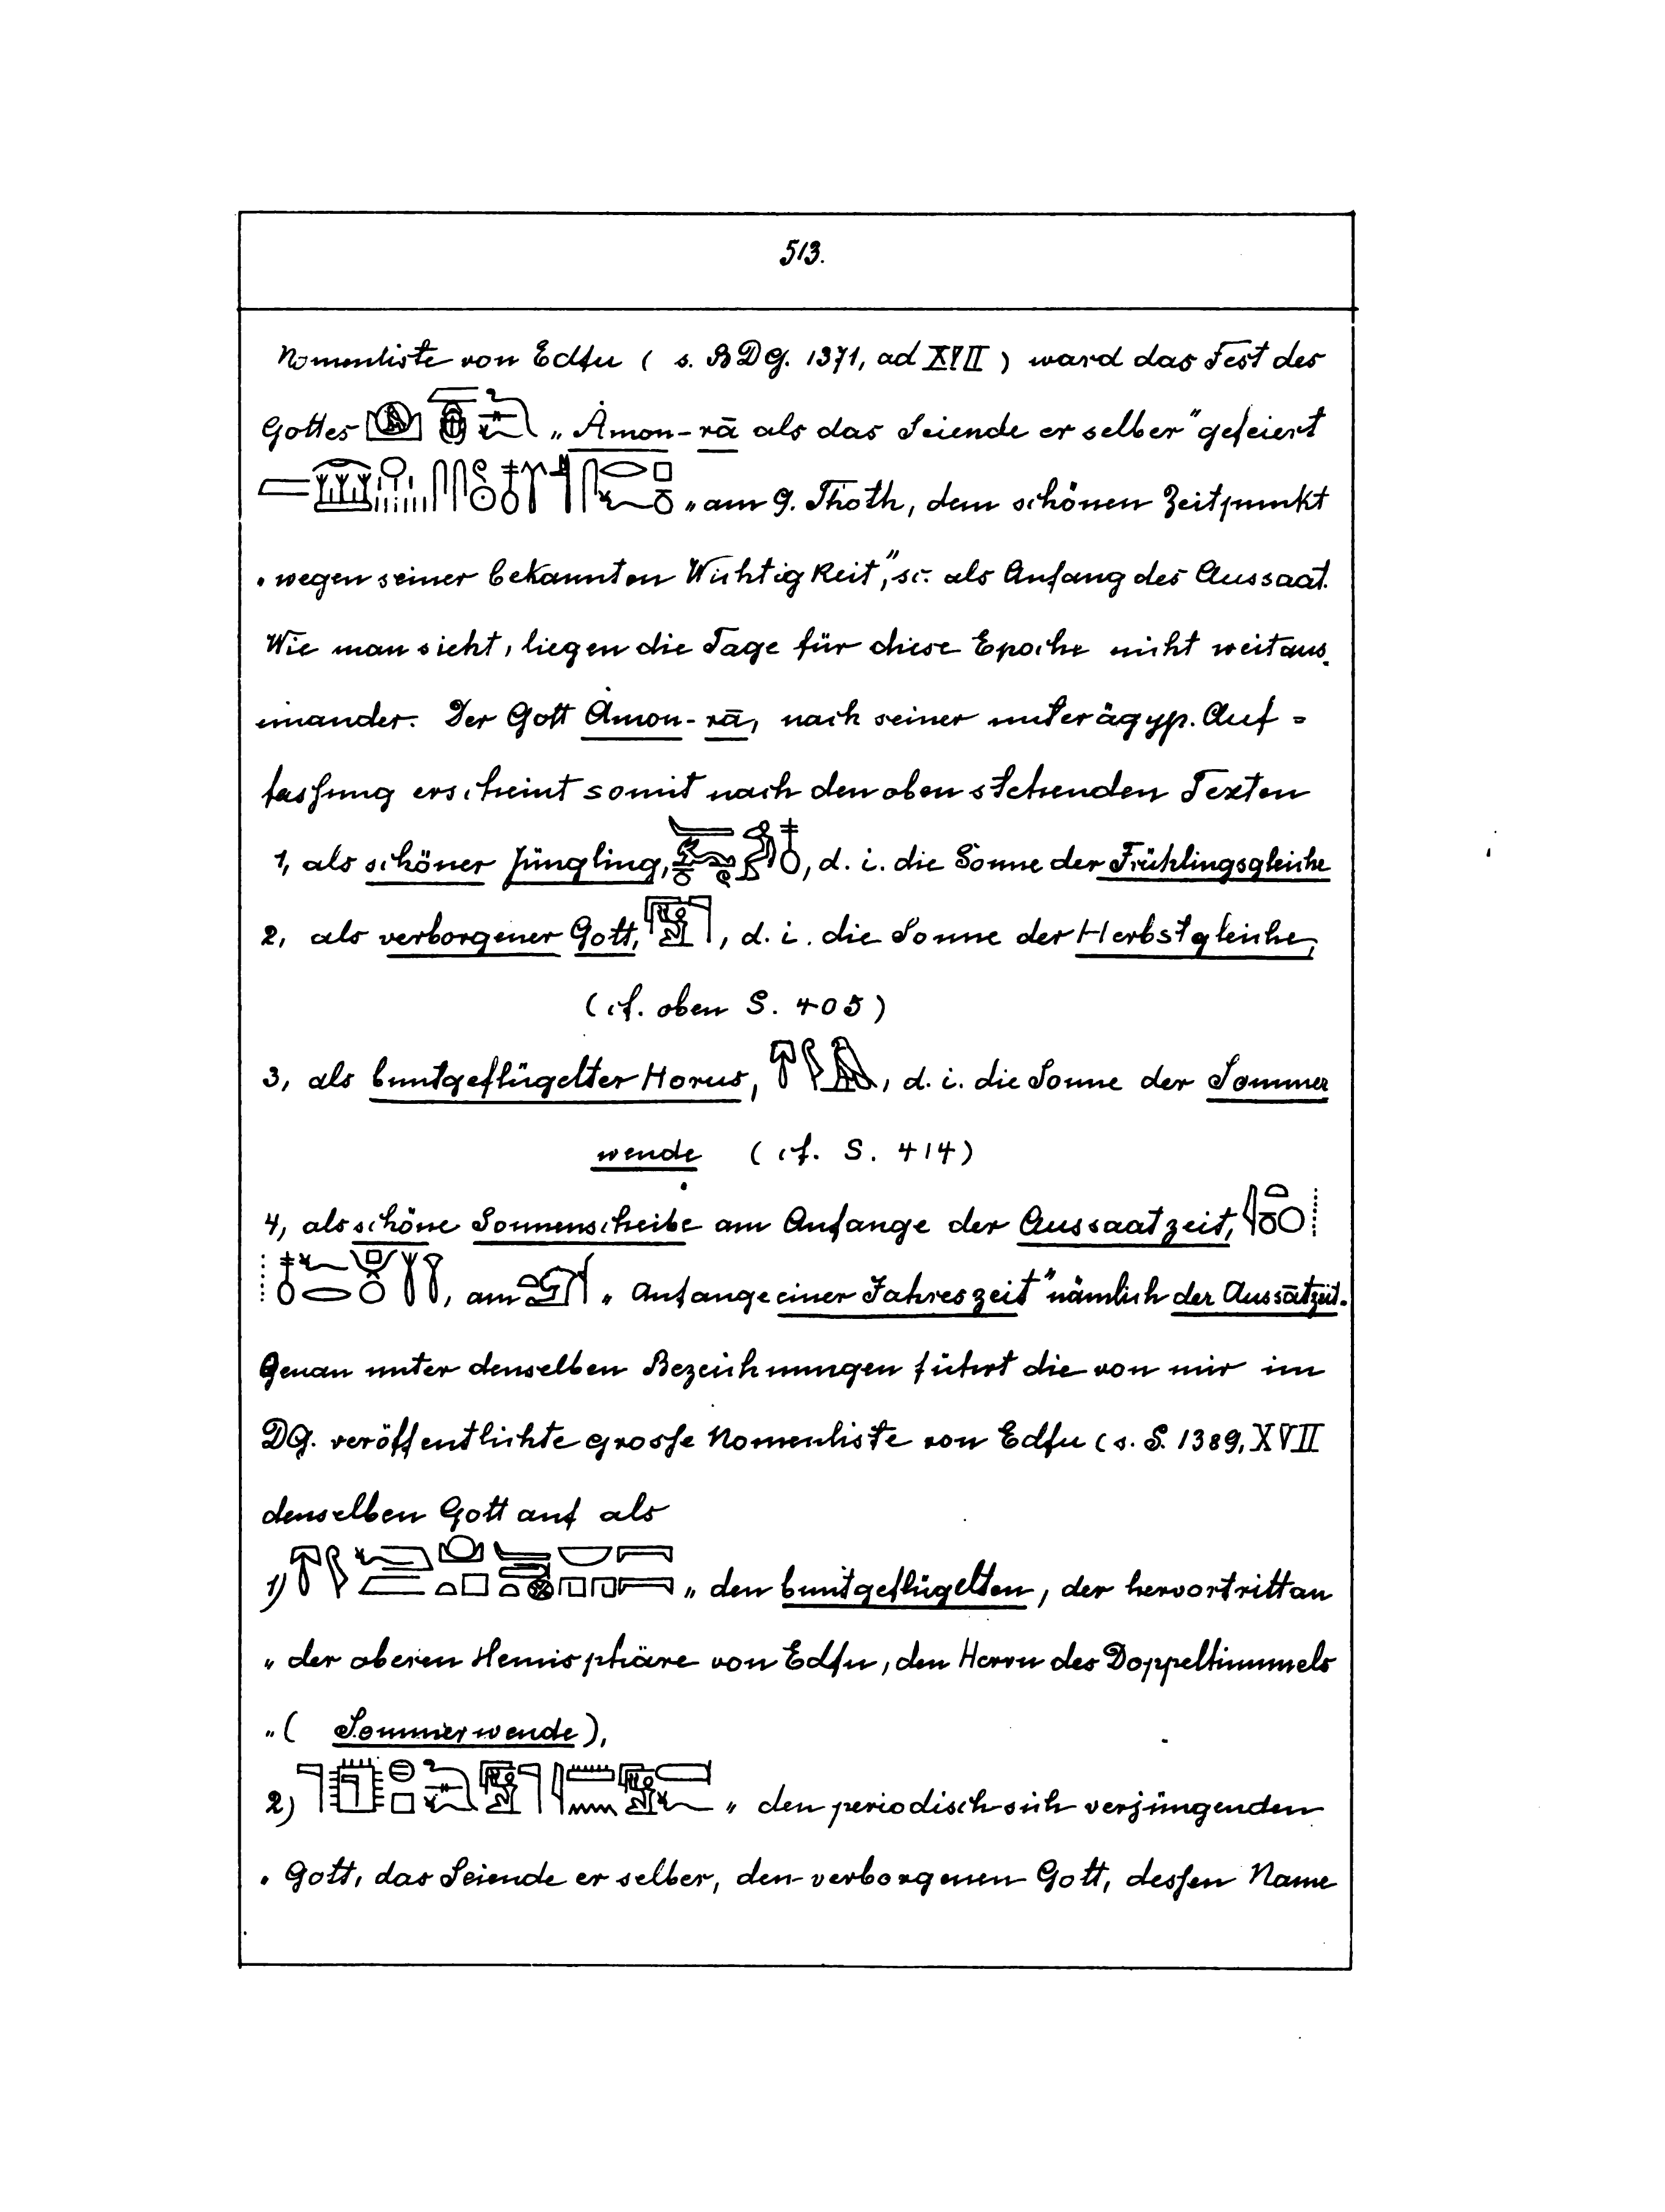 513.
Nomenliste von Edfu ( s. BDG. 1371, ad XVII ) ward das Fest des
Gottes „Ȧmon-rā als das Seiende er selber" gefeiert
„am 9. Thoth, dem schönen Zeitpunkt
„wegen seiner bekannten Wichtigkeit", sc. als Anfang des Aussaat.
Wie man sieht, liegen die Tage für diese Epoche nicht weit aus
einander. Der Gott Ȧmon-rā, nach seiner unterägyp. Auf=
fassung erscheint somit nach den oben stehenden Texten
1, als schöner Jüngling, , d. i. die Sonne der Frühlingsgleiche
2, als verborgener Gott, , d. i. die Sonne der Herbstgleiche,
(cf. oben S. 405)
3, als buntgeflügelter Horus, , d. i. die Sonne der Sommer
wende (cf. S. 414)
4, als schöne Sonnenscheibe am Anfange der Aussaatzeit,
, am „Anfange einer Jahreszeit" nämlich der Aussatzeit.
Genau unter denselben Bezeichnungen führt die von mir im
DG. veröffentlichte grosse Nomenliste von Edfu (s. S. 1389, XVII
denselben Gott auf als
1) „den buntgeflügelten, der hervortritt an
„der oberen Hemisphäre von Edfu, den Herrn des Doppelhimmels
„( Sommerwende),
2) „den periodisch sich verjüngenden
„Gott, das Seiende er selber, den verborgenen Gott, dessen Name